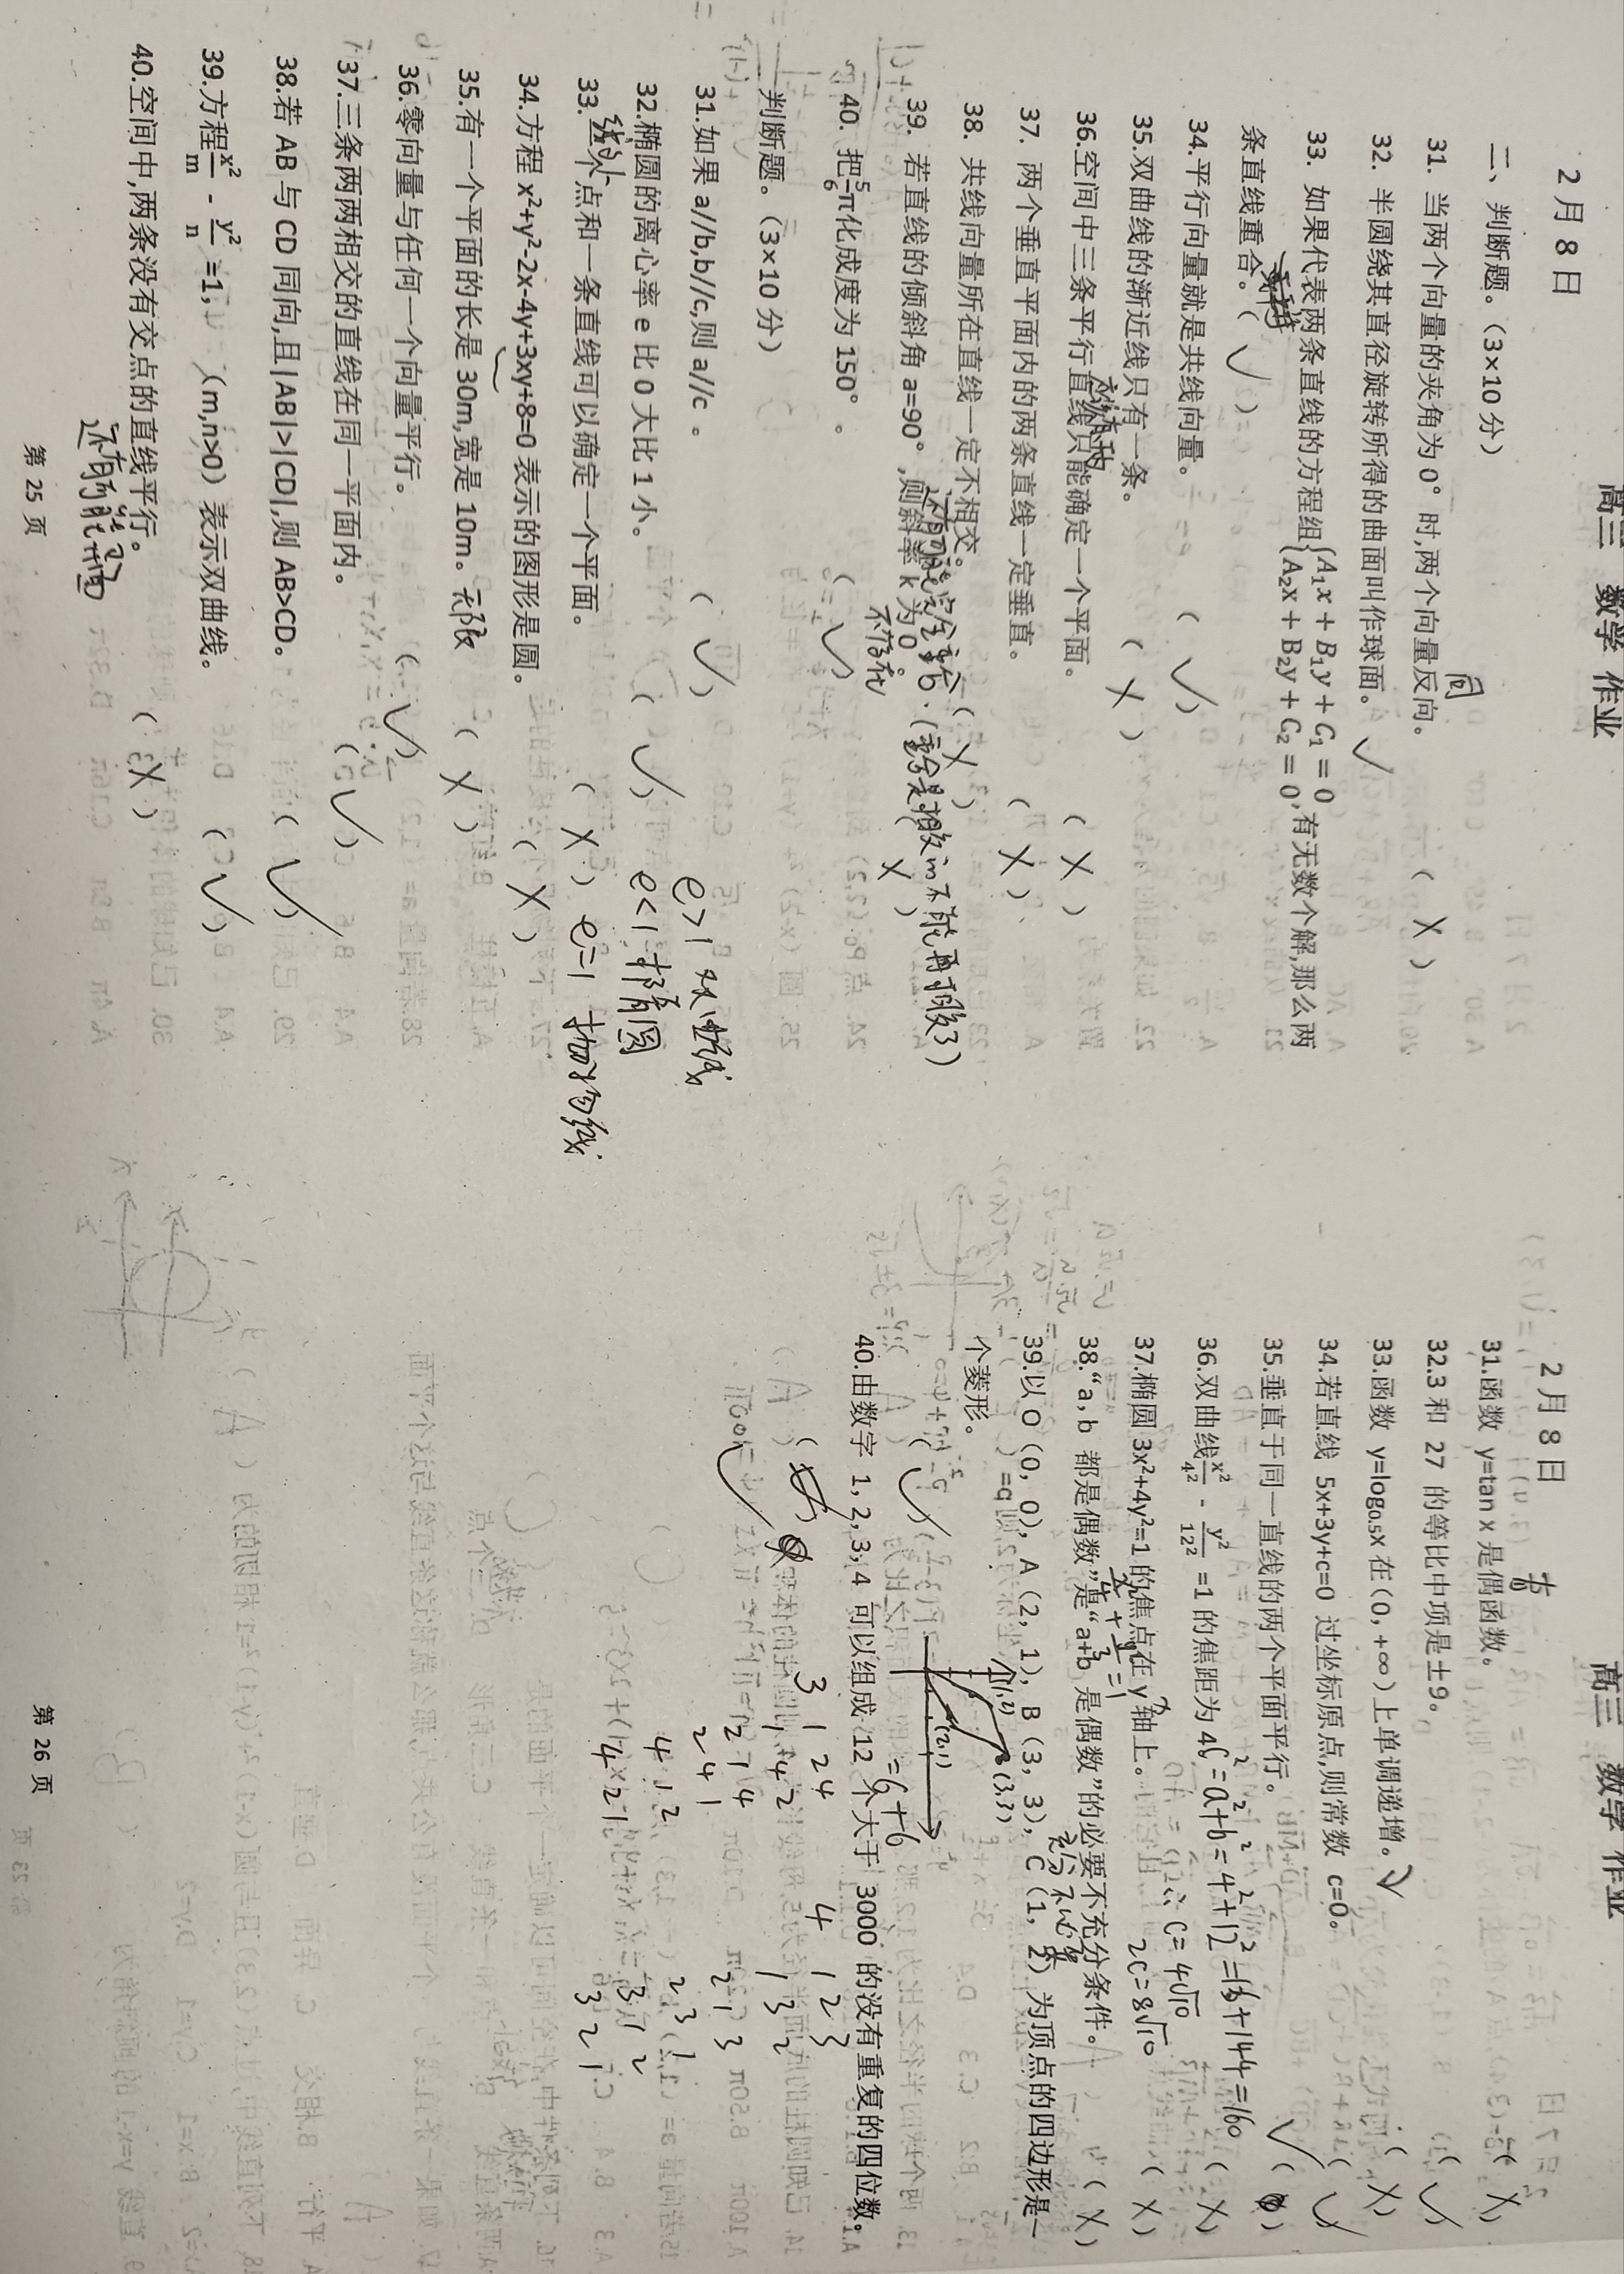 高三 数学 作业
2月8日
二、判断题。（3×10 分）
31. 当两个向量的夹角为 0° 时,两个向量反向。 同 （ X ）
32. 半圆绕其直径旋转所得的曲面叫作球面。 ✓
33. 如果代表两条直线的方程组{A₁x + B₁y + C₁ = 0
A₂x + B₂y + C₂ = 0,有无数个解,那么两
条直线重合。（ ✓ ）
34.平行向量就是共线向量。 （ ✓ ）
35.双曲线的渐近线只有一条。 （ X ）
36.空间中三条平行直线只能确定一个平面。 （ X ）
37. 两个垂直平面内的两条直线一定垂直。 （ X ）
38. 共线向量所在直线一定不相交。 （ X ）
39. 若直线的倾斜角 a=90° ,则斜率 k 为 0 。 （ X ）
不存在
40. 把5/6π化成度为 150° 。 （ ✓ ）
判断题。（3×10 分）
31.如果 a//b,b//c,则 a//c 。 （ ✓ ）
e>1 双曲线
32.椭圆的离心率 e 比 0 大比 1 小。 （ ✓ ）
e<1 椭圆
33.一个点和一条直线可以确定一个平面。 （ X ）
e=1 抛物线
34.方程 x²+y²-2x-4y+3xy+8=0 表示的图形是圆。 （ X ）
35.有一个平面的长是 30m,宽是 10m。 无限 （ X ）
36.零向量与任何一个向量平行。 （ ✓ ）
37.三条两两相交的直线在同一平面内。 （ ✓ ）
38.若 AB 与 CD 同向,且|AB|>|CD|,则 AB>CD。 （ ✓ ）
39.方程x²/m - y²/n =1,（m,n>0）表示双曲线。 （ ✓ ）
40.空间中,两条没有交点的直线平行。 （ X ）
还有可能异面
第 25 页
高三 数学 作业
2月8日
31.函数 y=tan x 是偶函数。 奇 （ X ）
32.3 和 27 的等比中项是±9。 （ ✓ ）
33.函数 y=log₀.₅x 在(0, +∞) 上单调递增。 （ X ）
34.若直线 5x+3y+c=0 过坐标原点,则常数 c=0。 （ ✓ ）
35.垂直于同一直线的两个平面平行。 ✓
36.双曲线x²/4² - y²/12² =1 的焦距为 4 （ X ）
C²=a²+b²=4²+12²=16+144=160
∴ C=4√10
2C=8√10
37.椭圆 3x²+4y²=1 的焦点在 y 轴上。 （ X ）
38.“a, b 都是偶数”是“a+b 是偶数”的必要不充分条件。 （ X ）
充分不必要
39.以 O（0, 0），A（2, 1），B（3, 3），C（1, 2）为顶点的四边形是一
个菱形。 （ ✓ ）
(1,2) (2,1) (3,3)
40.由数字 1, 2,3,4 可以组成 12 个大于 3000 的没有重复的四位数。
✓
=6+6
3 1 2 4
1 4 2
2 1 4
2 4 1
4 1 2
4 2 1
4 1 2 3
1 3 2
2 1 3
2 3 1
3 1 2
3 2 1
第 26 页